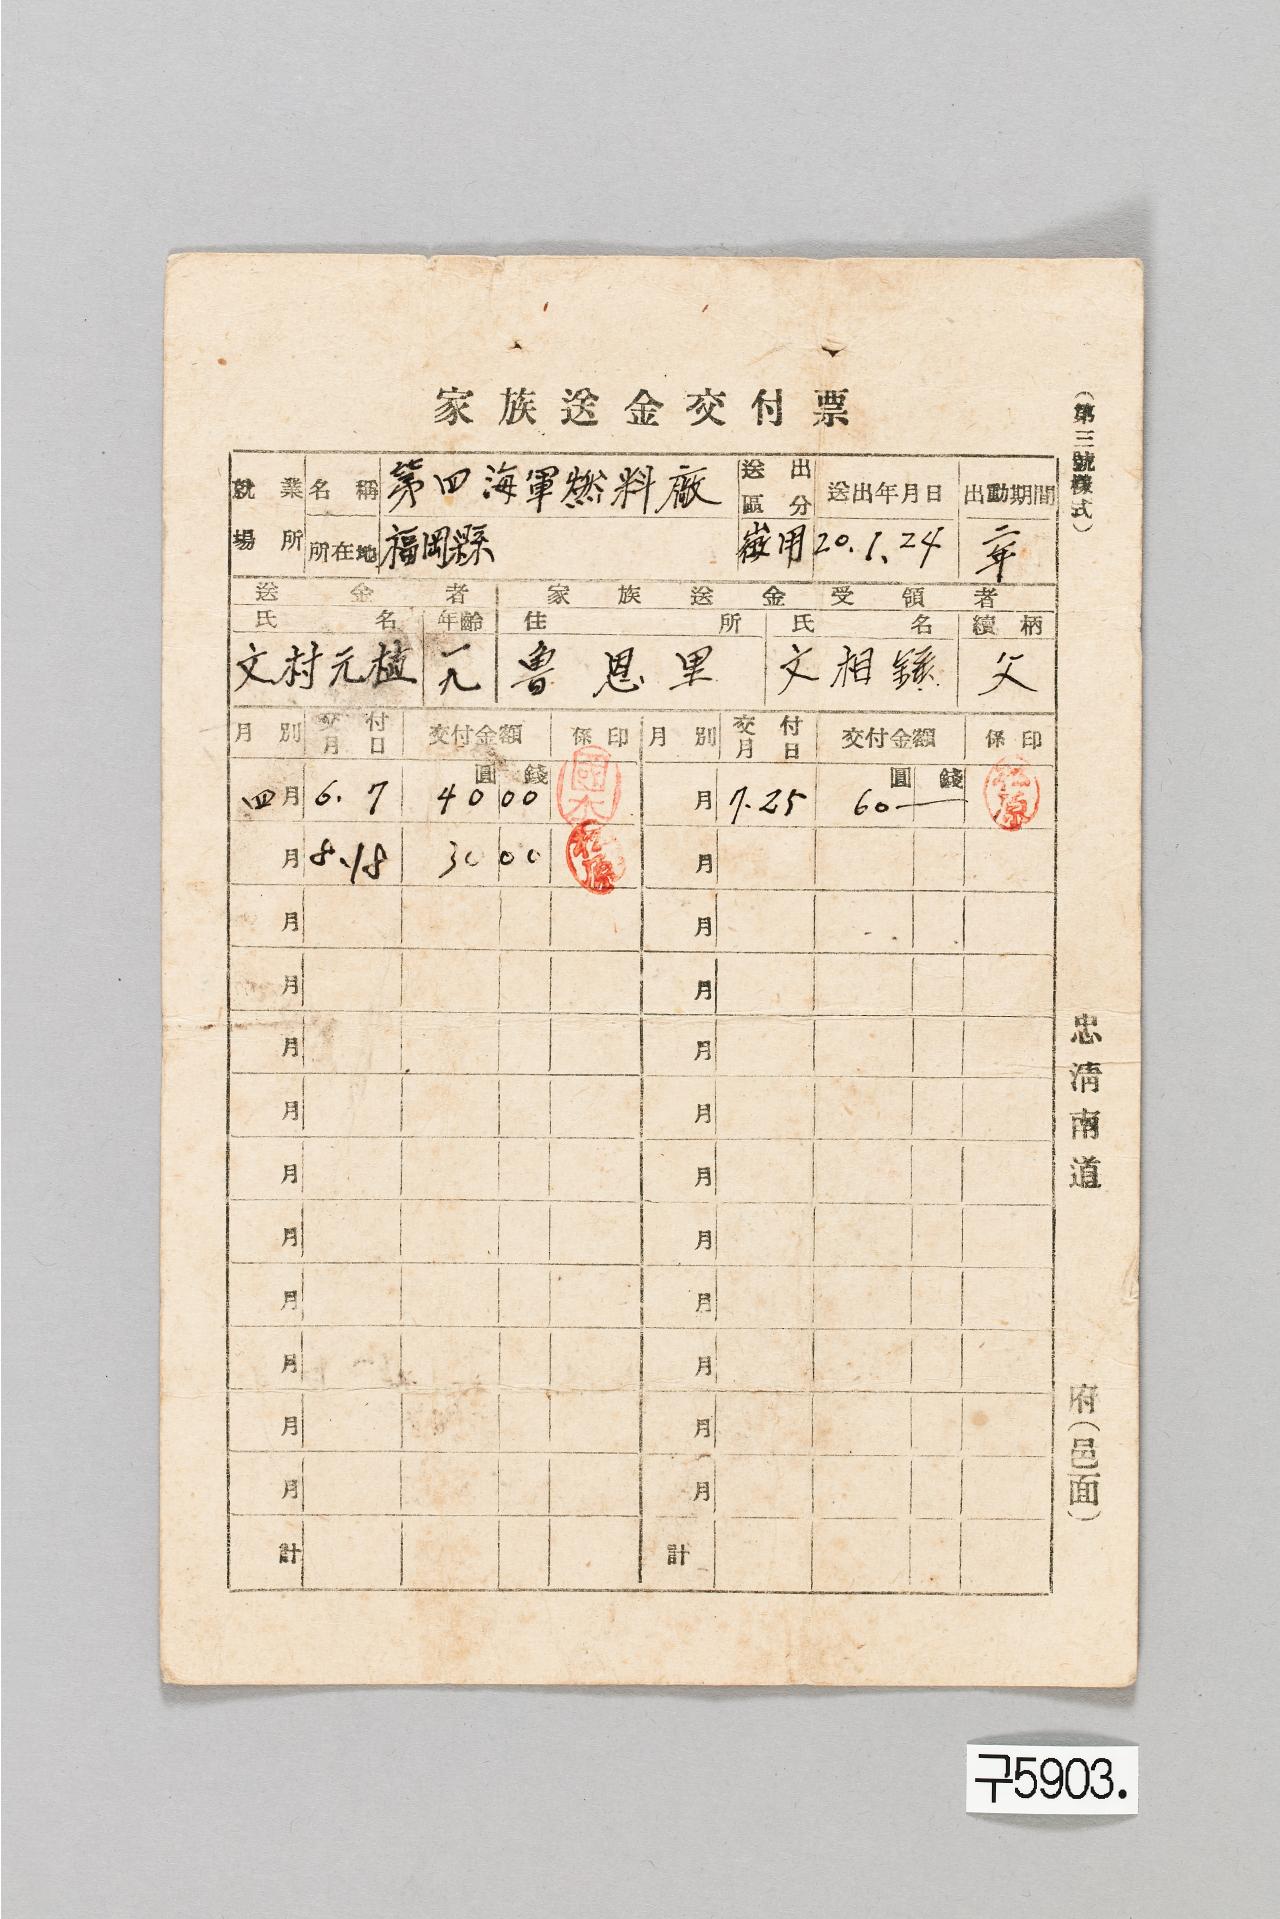 家族送金交付票
(第三號樣式)
就業場所 名稱 第四海軍燃料廠 送出區分 送出年月日 出動期間
所在地 福岡縣 徴用 20.1.24 二年
送金者 家族送金受領者
氏名 年齡 住所 氏名 續柄
文村元植 一九 魯恩里 文相 父
月別 交付月日 交付金額 係印 月別 交付月日 交付金額 係印
圓 錢 圓 錢
四月 6.7 40 00 國本 月 7.25 60— 松原
月 8.18 30 00 松原 月
月 月
月 月
月 月
月 月
月 月
月 月
月 月
月 月
月 月
月 月
計 計
忠淸南道 府(邑面)
구5903.